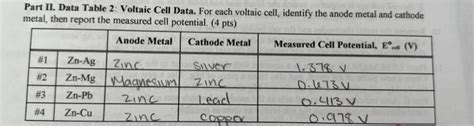 Part II. Data Table 2: Voltaic Cell Data. For each voltaic cell, identify the anode metal and cathode
metal, then report the measured cell potential. (4 pts)
Anode Metal Cathode Metal Measured Cell Potential, E°cell (V)
#1 Zn-Ag Zinc Silver 1.378 V
#2 Zn-Mg Magnesium Zinc 0.473 V
#3 Zn-Pb Zinc Lead 0.413 V
#4 Zn-Cu Zinc copper 0.978 V